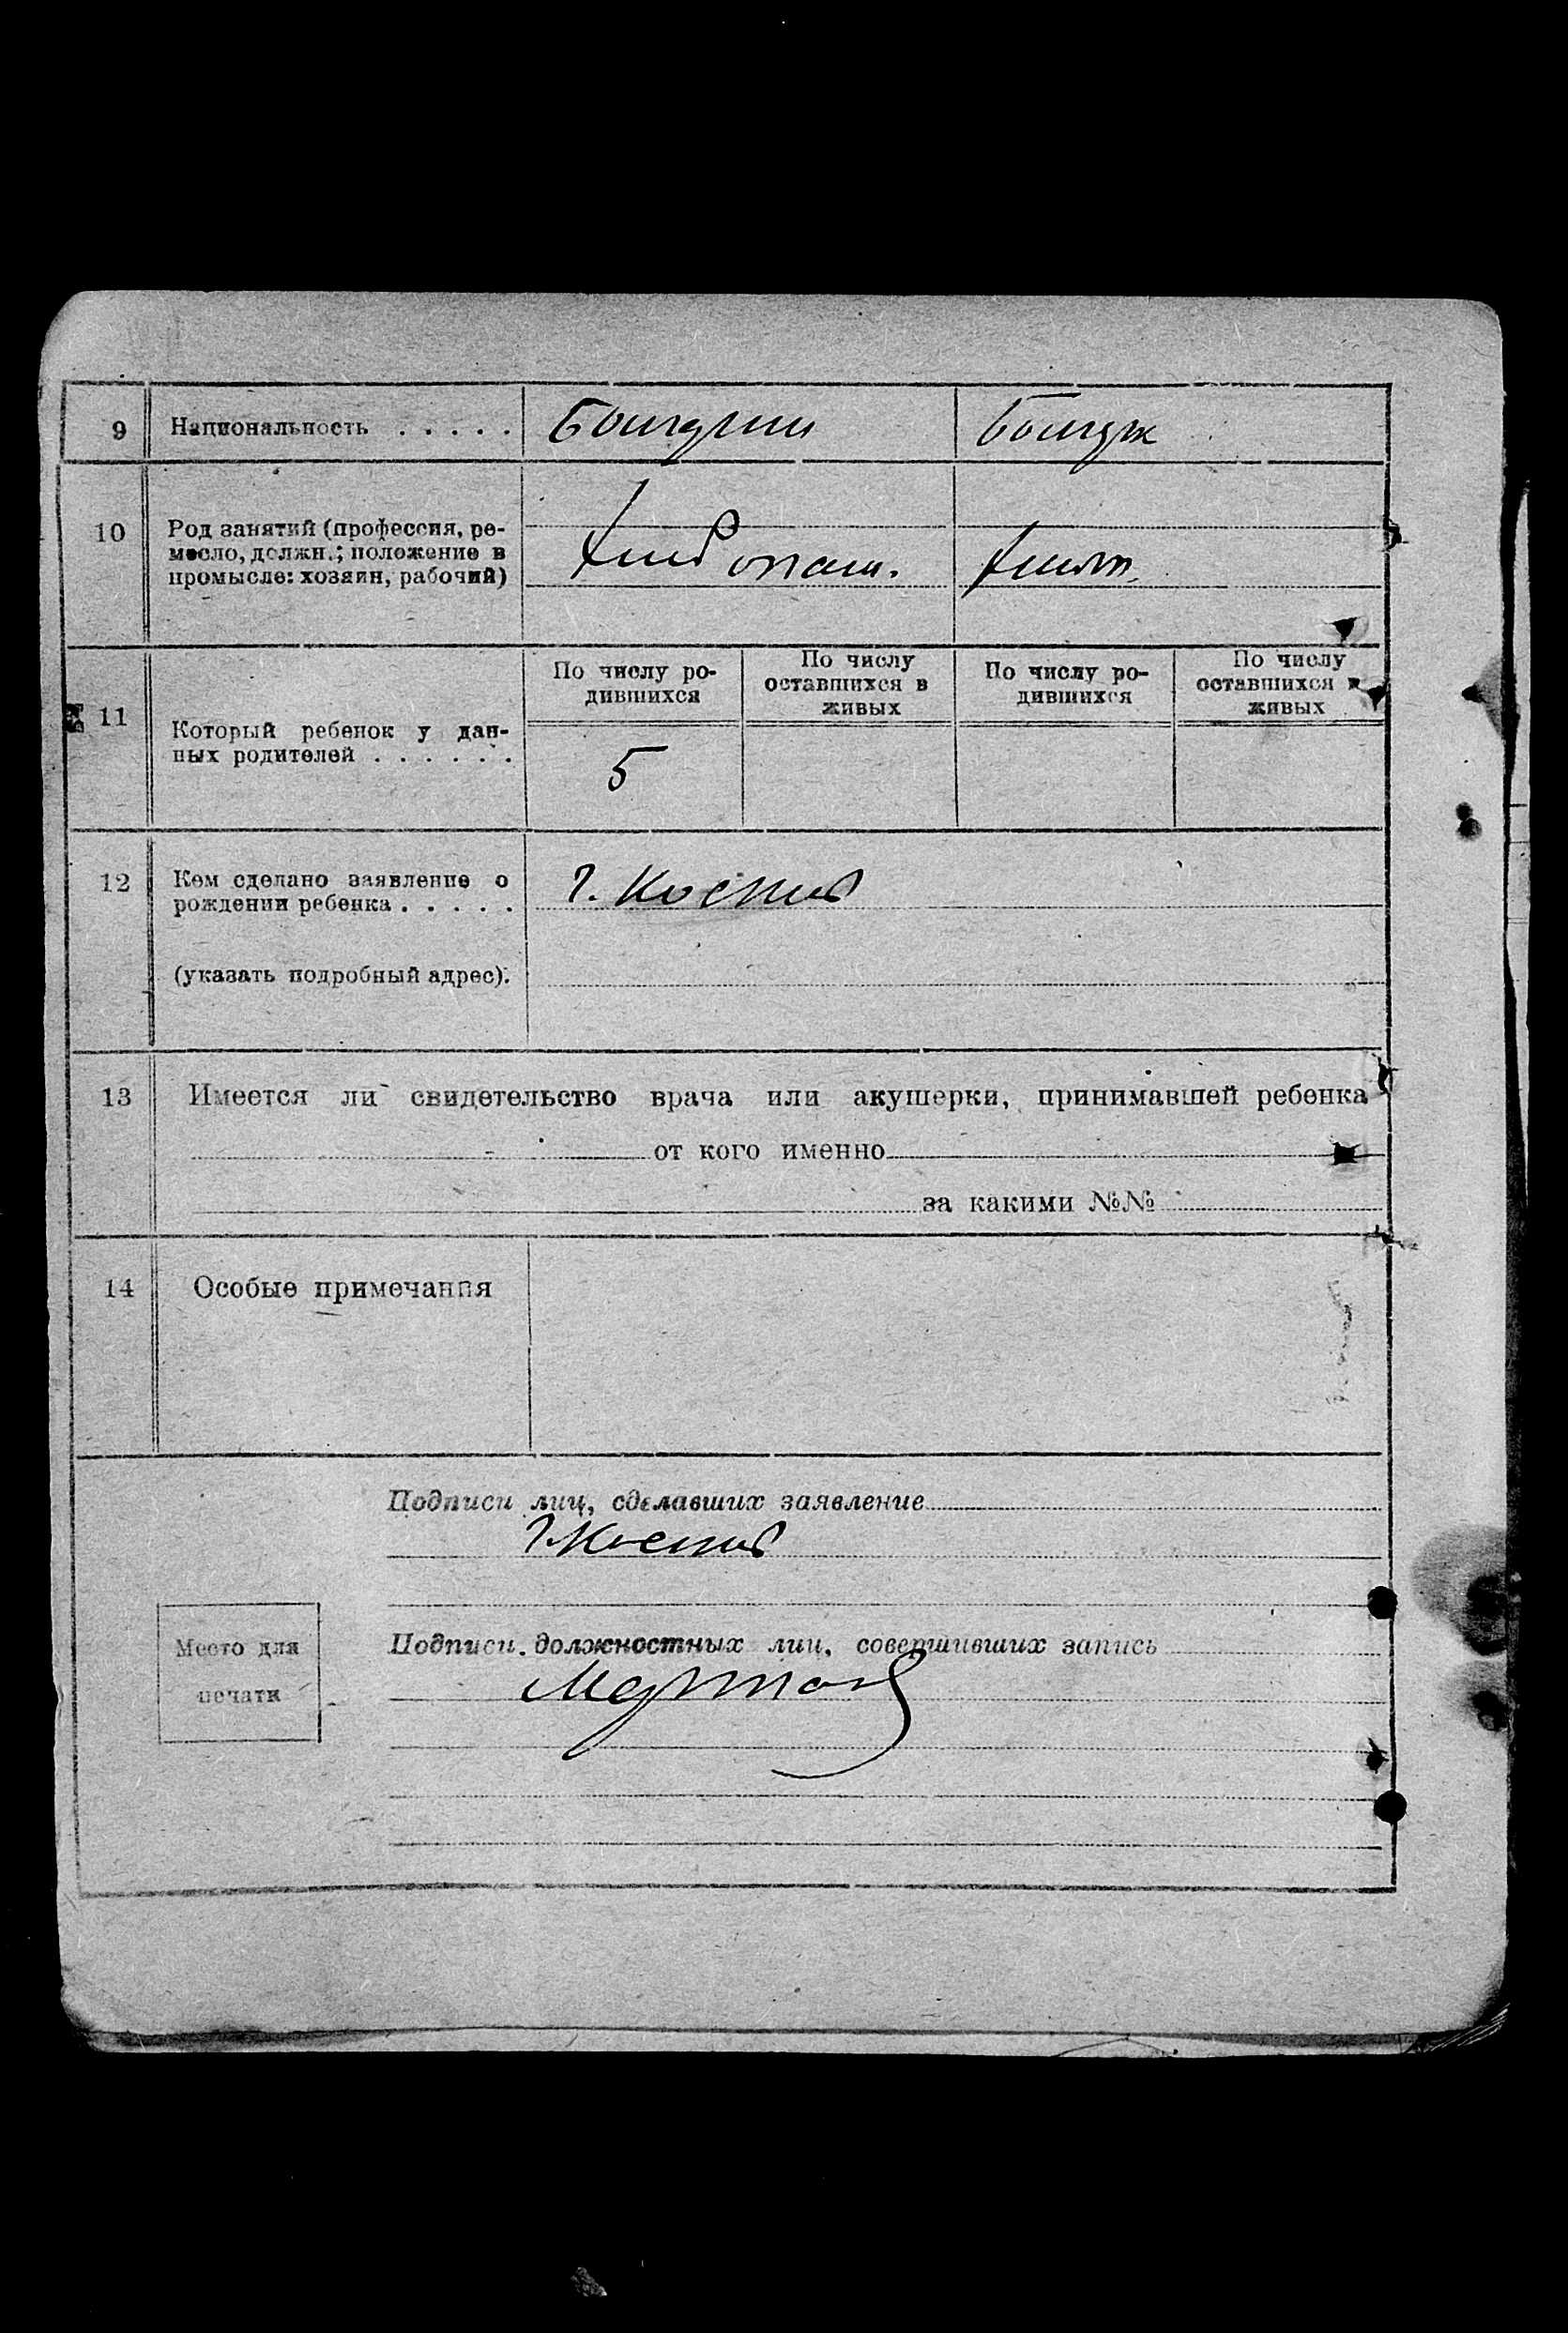 9 Национальность . . . . .
10 Род занятий (профессия, ре-
месло, должн.; положение в
промысле: хозяин, рабочий)
11 Который ребенок у дан-
ных родителей . . . . . .
По числу ро-
дившихся
По числу
оставшихся в
живых
По числу ро-
дившихся
По числу
оставшихся в
живых
5
12 Кем сделано заявление о
рождении ребенка . . . . .
(указать подробный адрес).
13 Имеется ли свидетельство врача или акушерки, принимавшей ребенка
от кого именно
за какими №№
14 Особые примечания
Подписи лиц, сделавших заявление
Место для
печати
Подписи должностных лиц, совершивших запись